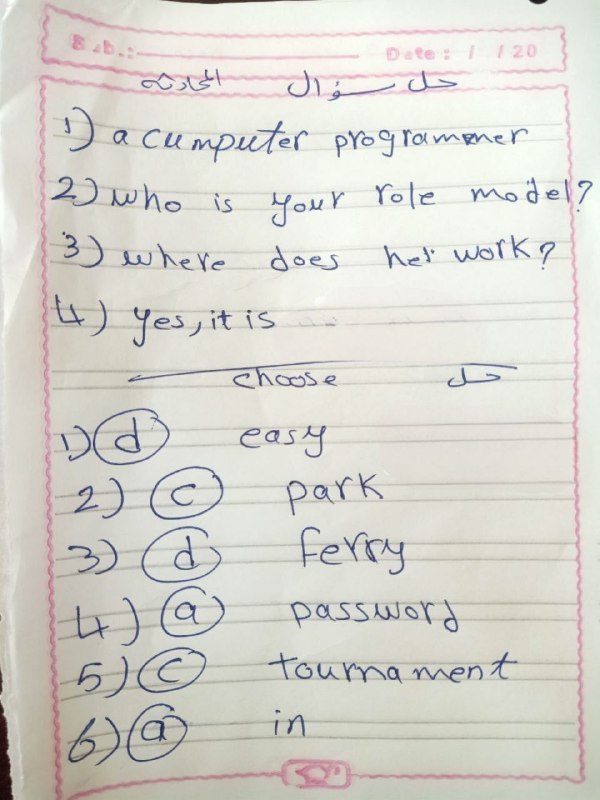 S.b.: Date: / / 20
حل سؤال المحادثه
1) a cumputer programmer
2) who is your role model?
3) where does her work?
4) yes, it is
حل choose
1) d easy
2) c park
3) d ferry
4) a password
5) c tournament
6) a in